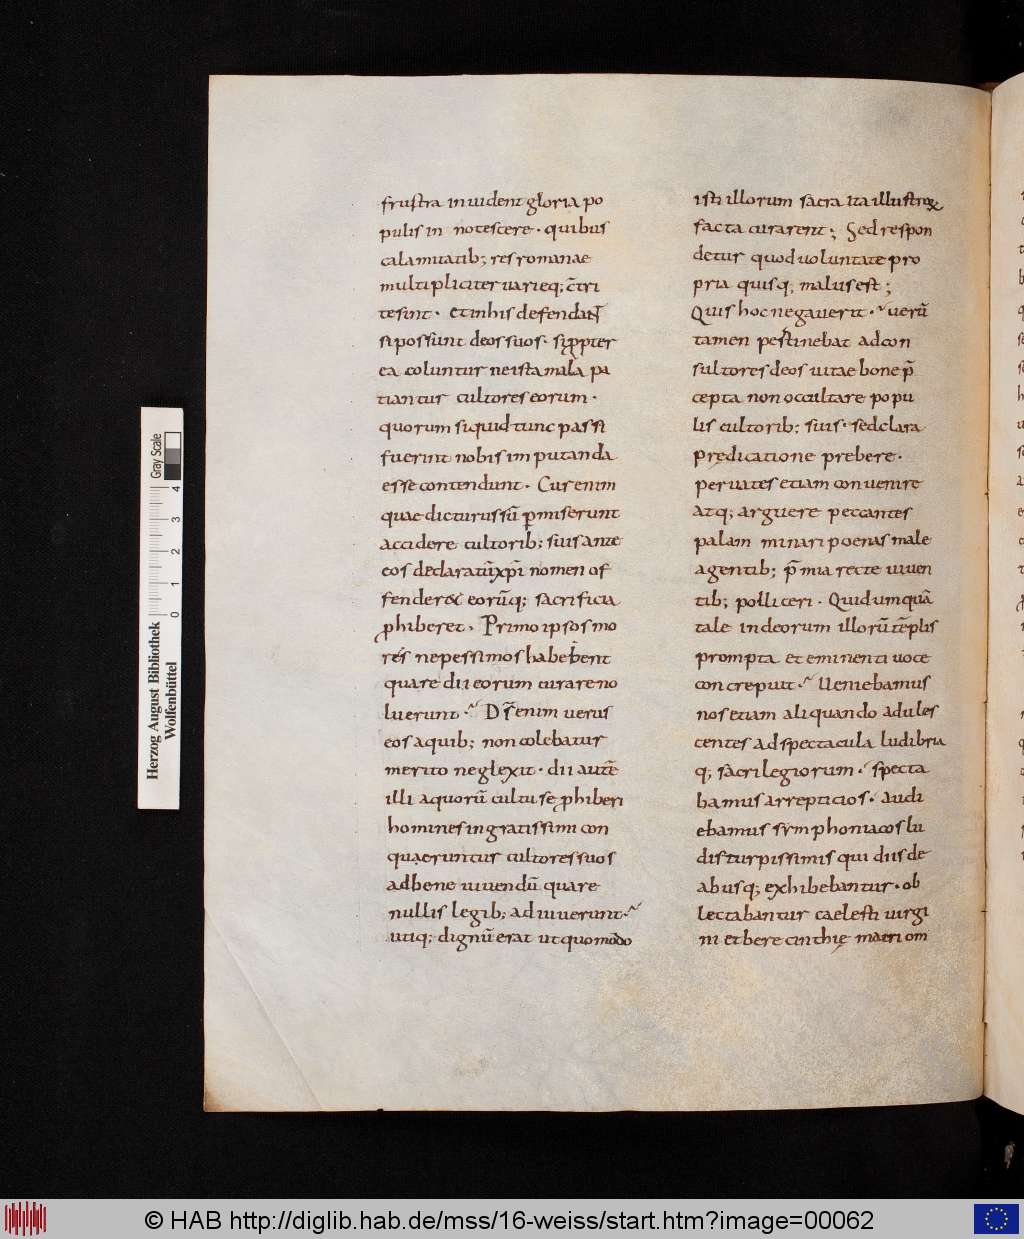 frustra inuident gloria po
pulis in notescere · quibus
calamitatib; res romanae
multipliciter uarieq; c̄tri
tesint · et inhis defendaN̄T
si possunt deos suos · si ꝓpter
ea coluntur ne ista mala pa
tiantur cultores eorum ·
quorum siquid tunc passi
fuerint nobis imputanda
esse contendunt · Cur enim
quae dicturus sū ꝑmiserunt
accidere cultorib; suis ante
eos declaratū xp̄i nomen of
fenderet eorūq; sacrificia
ꝓhiberet · Primo ipsos mo
res nepessimos haberent
quare dii eorum curare no
luerunt · Ds̄ enim uerus
eos aquib; non colebatur
merito neglexit · dii autē
illi aquorū cultu se ꝓhiberi
homines ingratissimi con
quaeruntur cultores suos
adbene uiuendū quare
nullis legib; adiuuerunt ·
utiq; dignū erat ut quomodo
isti illorum sacra ita illustroꝝ
facta curarent ; Sed respon
detur quod uoluntate pro
pria quisq; malus est ;
Quis hoc negauerit · uerū
tamen pertinebat ad con
sultores deos uitae bone p̄
cepta non occultare popu
lis cultorib; suis · sed clara
prędicatione prebere ·
per uates etiam conuenire
atq; arguere peccantes
palam minari poenas male
agentib; p̄mia recte uiuen
tib; polliceri · Quid umquā
tale in deorum illorū tēplis
prompta et eminenti uoce
concrepuit · Ueniebamus
nos etiam aliquando adules
centes ad spectacula ludibria
q; sacrilegiorum · specta
bamus arrepticios · audi
ebamus symphoniacos lu
dis turpissimis qui diis de
abusq; exhibebantur · ob
lectabantur caelesti uirgi
ni et berecinthię matri om
Herzog August Bibliothek
Wolfenbüttel
Gray Scale
0 1 2 3 4
© HAB http://diglib.hab.de/mss/16-weiss/start.htm?image=00062